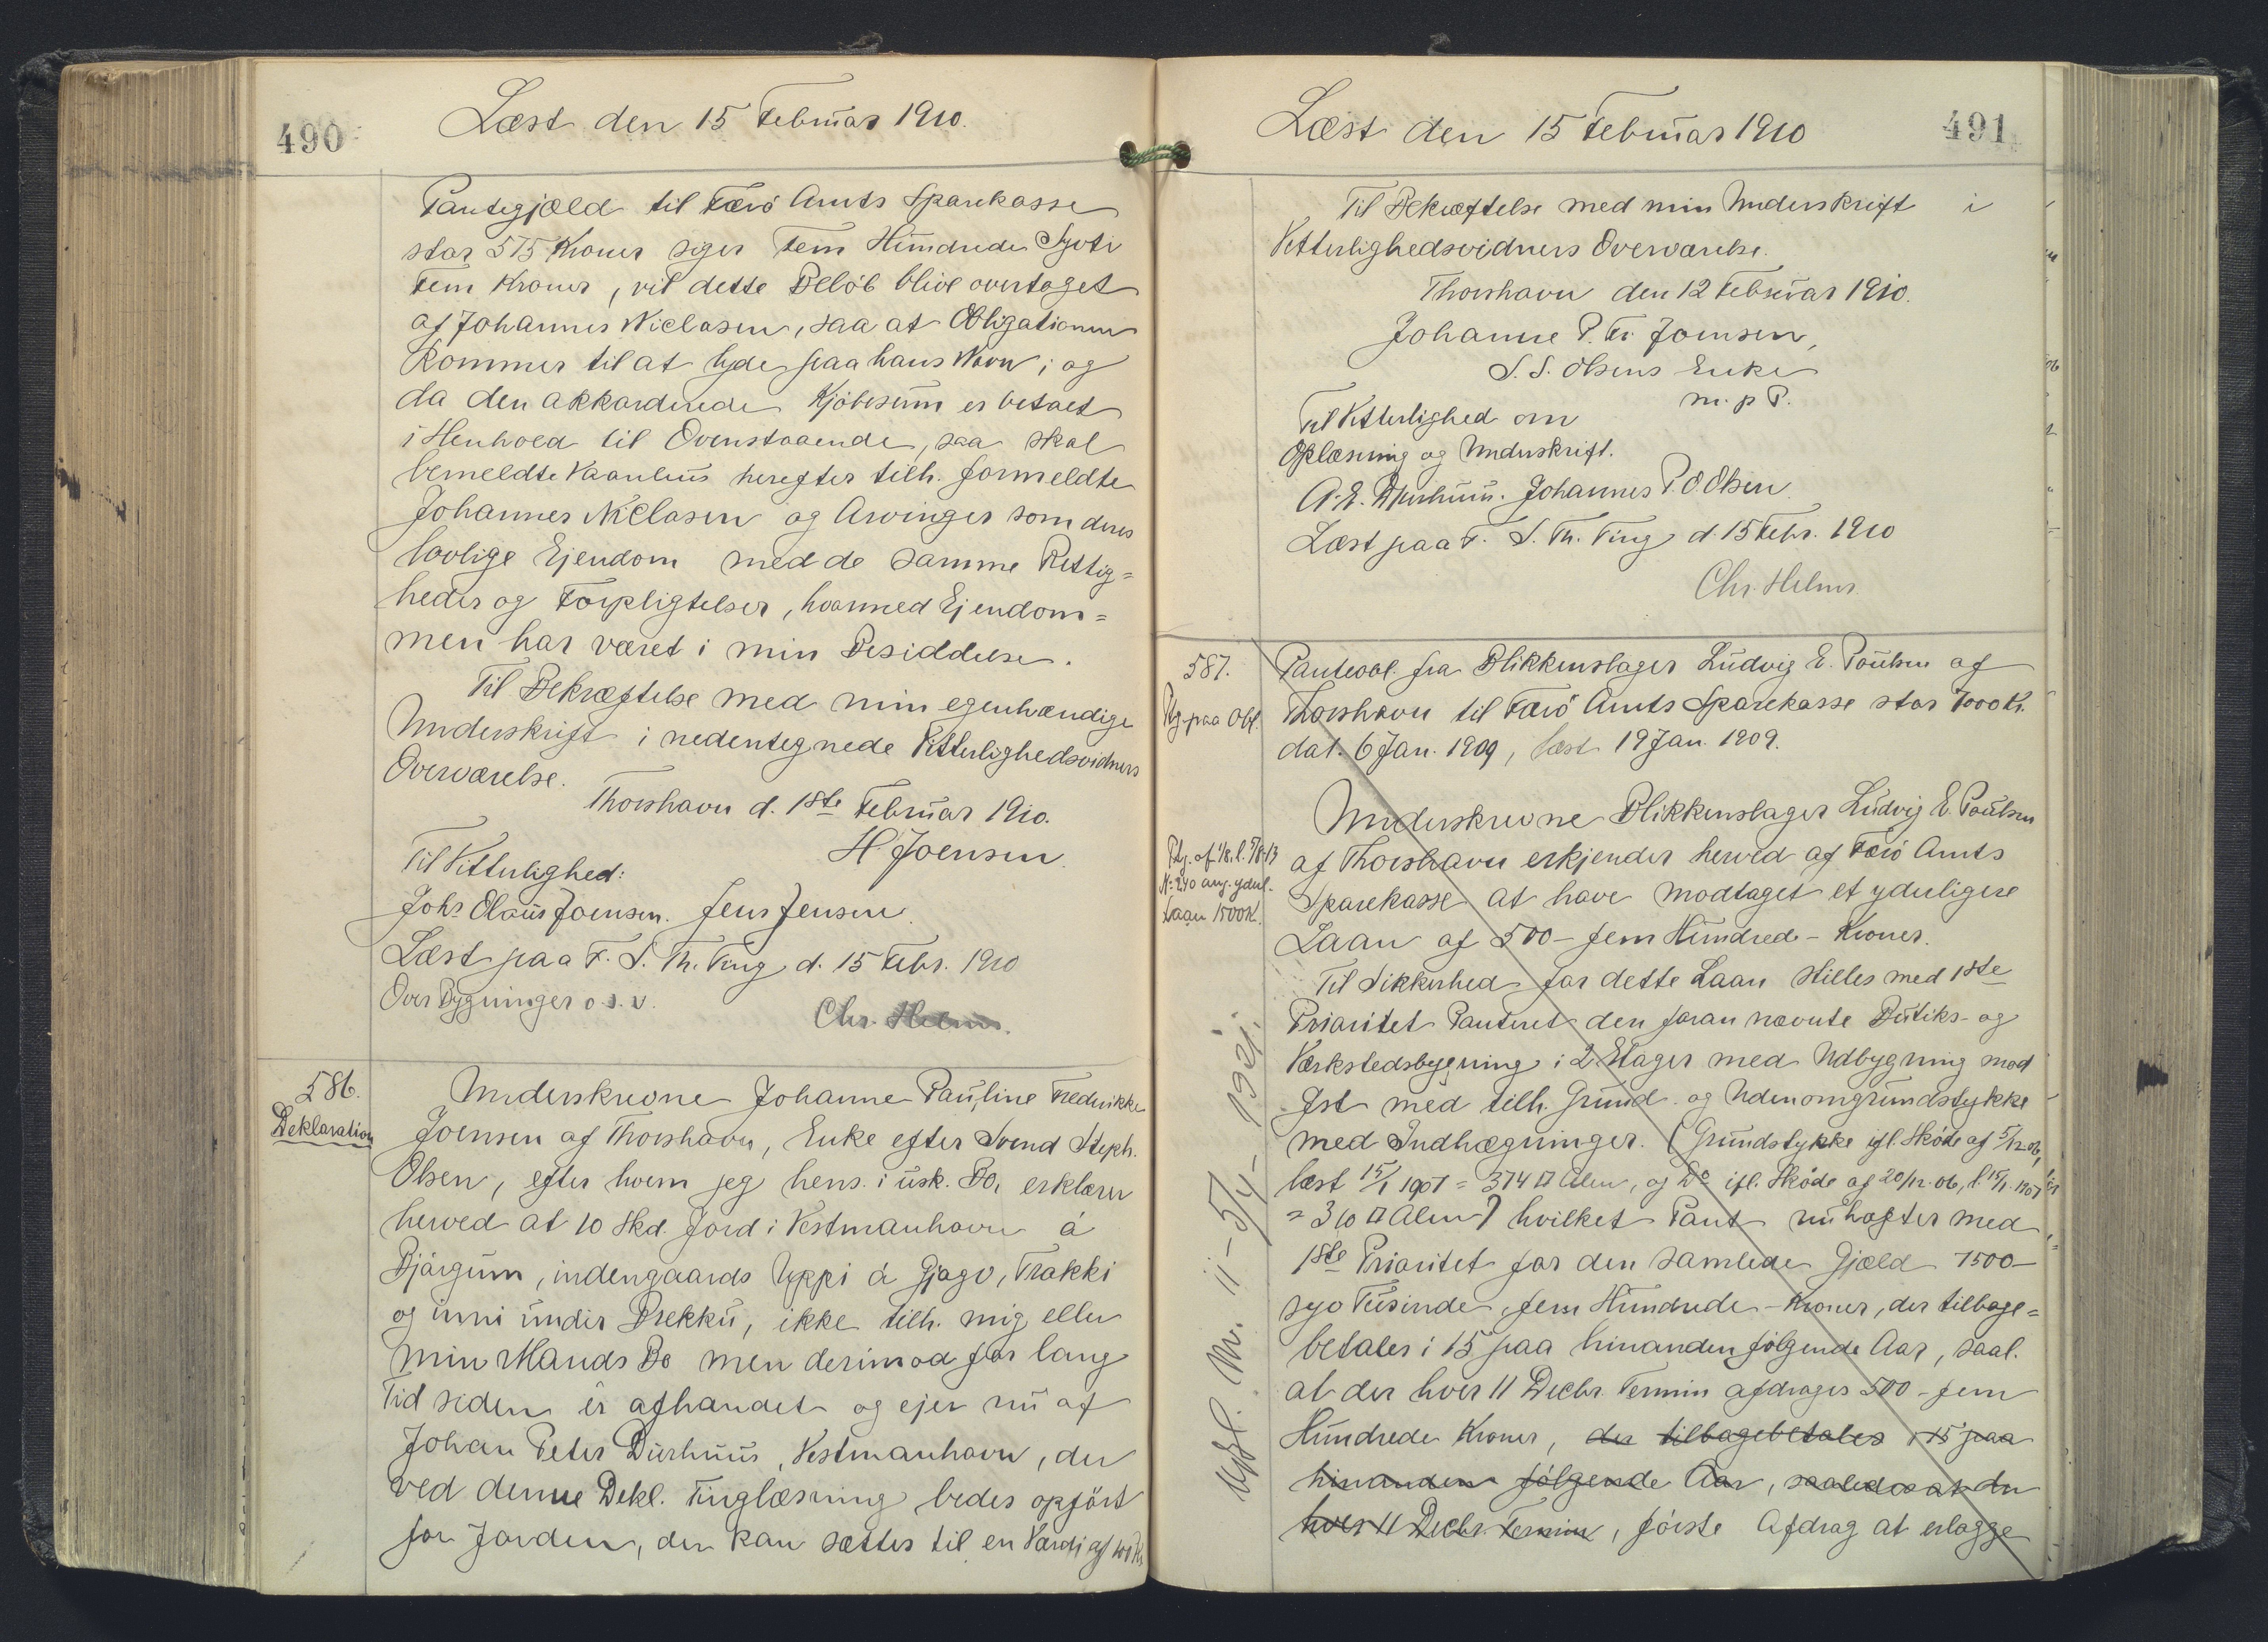 490
Læst den 15 Februar 1910.
Pantegjæld til Færö Amts Sparekasse
stor 575 Kroner siger Fem Hundrede Syvti
Fem Kroner, vil dette Belöb blive overtaget
af Johannes Niclasen, saa at Obligationen
kommer til at lyde paa hans Navn; og
da den akkorderede Kjöbesum er betalt
i Henhold til Ovenstaaende, saa skal
bemeldte Vaanhus herefter tilh. formeldte
Johannes Niclasen og Arvinger som deres
lovlige Ejendom med de samme Rettig=
heder og Forpligtelser, hvormed Ejendom=
men har været i min Besiddelse.
Til Bekræftelse med min egenhændige
Underskrift i nedentegnede Vitterlighedsvidners
Overværelse.
Thorshavn d. 1ste Februar 1910.
H. Joensen.
Til Vitterlighed:
Johs Olaus Joensen. Jens Jensen.
Læst paa F. S. Th. Ting d. 15 Febr. 1910
Over Bygninger o.s.v.
Chr. Helms.
586.
Deklaration
Underskrevne Johanne Pauline Fredrikke
Joensen af Thorshavn, Enke efter Svend Steph.
Olsen, efter hvem jeg hens. i usk. Bo, erklærer
herved at 10 Skd. Jord i Vestmanhavn á
Bjárgum, indengaards Uppi á Gjagv, Trakki
og inni undir Brekku, ikke tilh. mig eller
min Mands Bo men derimod for lang
Tid siden er afhændet og ejes nu af
Johan Peter Durhuus, Vestmanhavn, der
ved denne Dekl. Tinglæsning bedes opfört
for Jorden, der kan sættes til en Værdi af 100 Kr.
491
Læst den 15 Februar 1910
Til Bekræftelse med min Underskrift i
Vitterlighedsvidners Overværelse.
Thorshavn den 12 Februar 1910.
Johanne P. Fr. Joensen,
S. S. Olsens Enke
m. p. P.
Til Vitterlighed om
Oplæsning og Underskrift.
A. E. Djurhuus. Johannes P. O. Olsen.
Læst paa F. S. Th. Ting d. 15 Febr. 1910
Chr. Helms.
587.
Ptg. paa Obl.
Panteobl. fra Blikkenslager Ludvig E. Poulsen af
Thorshavn til Færö Amts Sparekasse stor 7000 Kr.
dat. 6 Jan. 1909, læst 19 Jan. 1909.
Underskrevne Blikkenslager Ludvig E. Poulsen
af Thorshavn erkjender herved af Færö Amts
Sparekasse at have modtaget et yderligere
Laan af 500 - fem Hundred - Kroner.
Ptg. af
No 240 ang. yderl.
Laan 1500 K.
Til Sikkerhed for dette Laan stilles med 1ste
Prioritet Panteret den foran nævnte Butiks- og
Værkstedsbygning i 2 Etager med Udbygning mod
Öst med tilh. Grund og Udenomgrundstykke
med Indhægninger. (Grundstykke ifl. Sköde af 5/12.06,
læst 15/1 1907 = 374 □ Alen, og Do ifl. Sköde af 20/12.06, l. 15/1.1907
= 310 □ Alen) hvilket Pant nu hæfter med
1ste Prioritet for den samlede Gjæld 7500 -
syv Tusinde fem Hundrede - Kroner, der tilbage=
betales i 15 paa hinanden fölgende Aar, saal.
at der hver 11 Decbr. Termin afdrages 500 - fem
Hundrede Kroner, der tilbagebetales i 15 paa
hinanden fölgende Aar, saaledes at der
hver 11 Decbr. Termin, förste Afdrag at erlægge